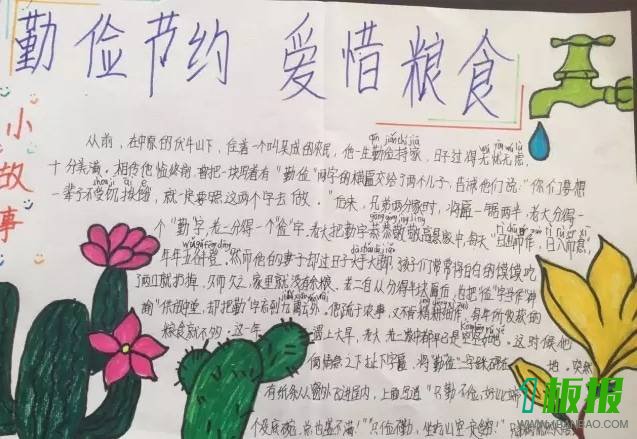 勤俭节约 爱惜粮食
小故事
从前，在中原的伏牛山下，住着一个叫吴成的农民，他一生勤俭持家，日子过得无忧无虑，
十分美满。相传他临终前，曾把一块写着有"勤俭"两字的横匾交给了两个儿子，告诫他们说："你们要想
一辈子不受饥挨饿，就一定要照这两个字去做。"后来，兄弟两分家时，将匾一锯两半，老大分得一
个"勤"字，老二分得一个"俭"字。老大把勤字恭恭敬敬高悬家中，每天"日出而作，日入而息"，
年年五谷丰登。然而他的妻子却过日子大手大脚，孩子们常常将白白的馍馍吃
了两口就扔掉，久而久之，家里就没有余粮。老二自从分得半块匾后，也把"俭"字当作"神
谕"供放中堂，却把"勤"字忘到九霄云外。他疏于农事，又不肯精耕细作，每年所收获的
粮食就不多。这一年 遇上大旱，老大、老二家中都早已是空空如也。这时候他
俩情急之下扯下字匾，将"勤""俭"二字踩碎在 地。突然
有纸条从窗外飞进屋内，上面写道："只勤不俭，好比端
个没底碗，总也盛不满！""只俭不勤，坐吃山空
板报
1BANBAO.COM